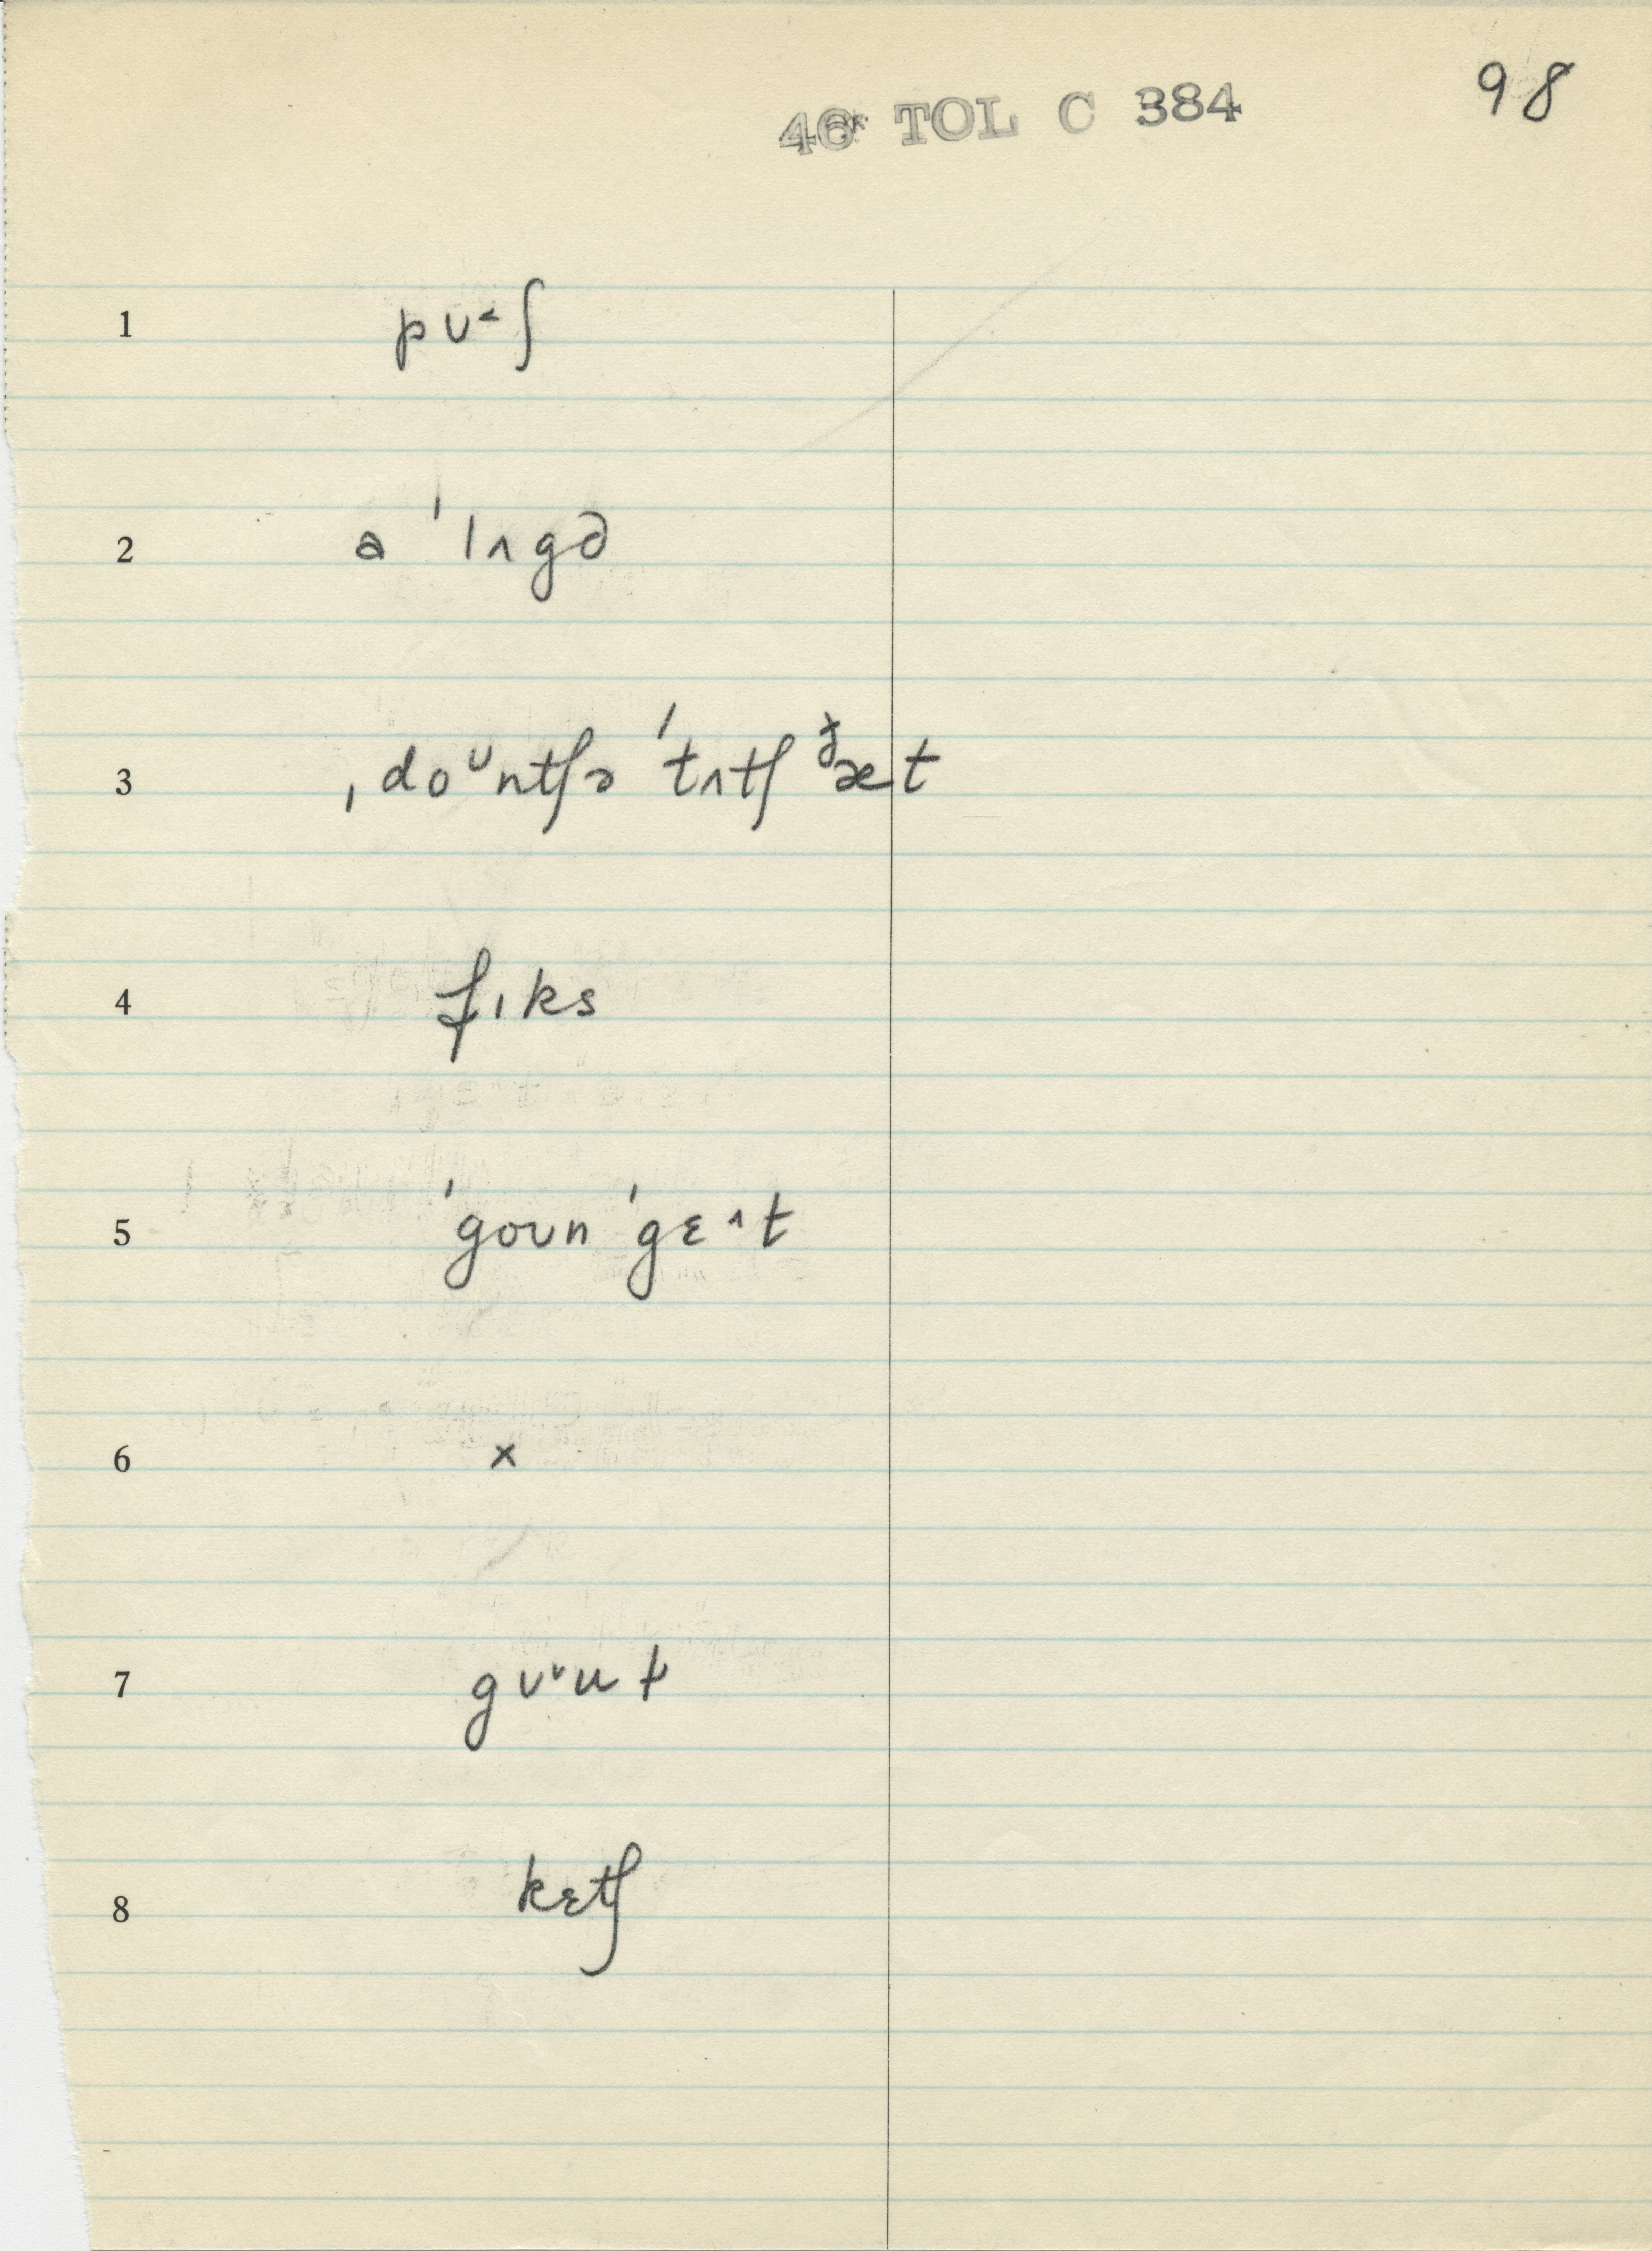 46 TOL C 384
98
1 pʊ˂ʃ
2 a ˈlʌgə
3 ˌdoᶷntʃə ˈtʌtʃ ð̵æt
4 fɪks
5 ˈgoʊn ˈgɛ˄t
6 ×
7 gʊ˅u
8 kɛtʃ